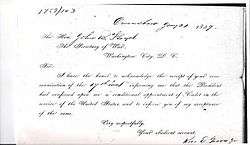 The Hon. John B. Floyd
The Secretary of War,
Washington City D. C.
Sir:
I have the honor to acknowledge the receipt of your com-
munication of the informing me that the President
has conferred upon me a conditional appointment of Cadet in the
service of the United States and to inform you of my acceptance
of the same.
Very respectfully,
Your obedient servant,
Geo. A.